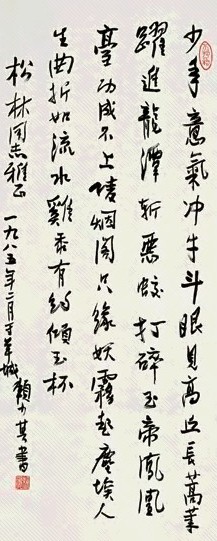 少年意氣冲牛斗眼見高丘長蒿萊
躍進龍潭斬惡蛟打碎玉帝鳳凰
臺功成不上凌烟阁只緣妖霧起塵埃人
生曲折如流水雞黍有約傾玉杯
松林同志雅正
一九八五年二月于羊城賴少其書